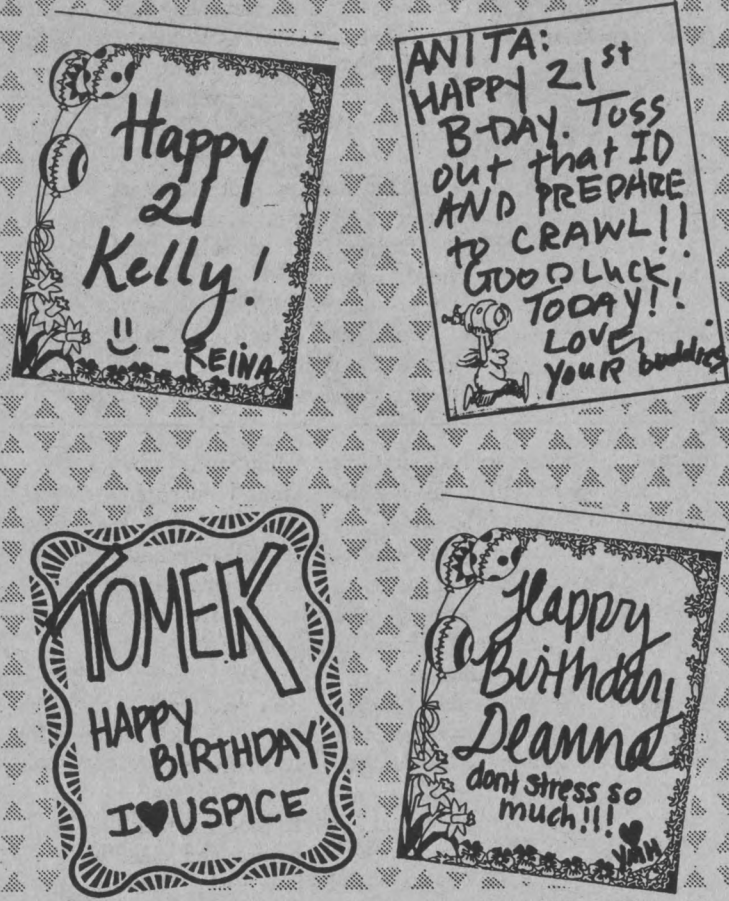 Happy
21
Kelly!
- REINA
ANITA:
HAPPY 21st
B-DAY. TOSS
out that ID
AND PREPARE
to CRAWL!!
GOOD LUCK
TODAY!!
LOVE,
YOUR buddies
TOMEK
HAPPY
BIRTHDAY
I♥USPICE
Happy
Birthday
Deanna
dont stress so
much!!! ♥
YMH